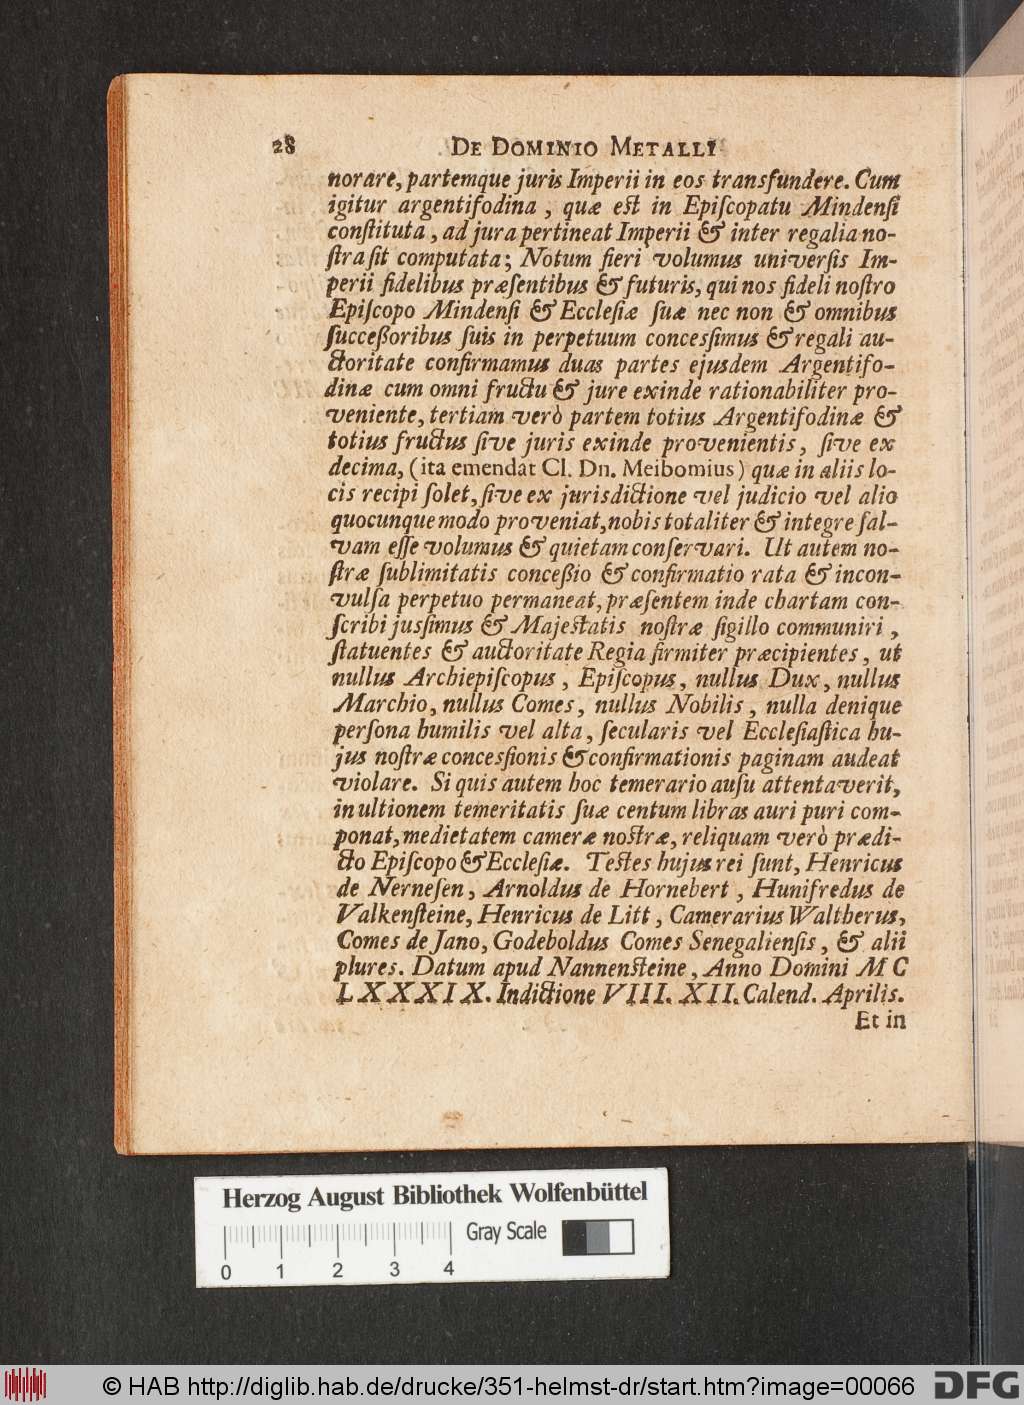 28 DE DOMINIO METALLI
norare, partemque juris Imperii in eos transfundere. Cum
igitur argentifodina, quæ est in Epiſcopatu Mindenſi
conſtituta, ad jura pertineat Imperii & inter regalia no-
ſtra ſit computata; Notum fieri volumus univerſis Im-
perii fidelibus præſentibus & futuris, qui nos fideli noſtro
Epiſcopo Mindenſi & Eccleſiæ ſuæ nec non & omnibus
ſucceßoribus ſuis in perpetuum concesſimus & regali au-
ctoritate confirmamus duas partes ejusdem Argentifo-
dinæ cum omni fructu & jure exinde rationabiliter pro-
veniente, tertiam verò partem totius Argentifodinæ &
totius fructus ſive juris exinde provenientis, ſive ex
decima, (ita emendat Cl. Dn. Meibomius) quæ in aliis lo-
cis recipi ſolet, ſive ex jurisdictione vel judicio vel alio
quocunque modo proveniat, nobis totaliter & integre ſal-
vam eſſe volumus & quietam conſervari. Ut autem no-
ſtræ ſublimitatis conceßio & confirmatio rata & incon-
vulſa perpetuo permaneat, præſentem inde chartam con-
ſcribi jusſimus & Majestatis noſtræ ſigillo communiri,
ſtatuentes & auctoritate Regia firmiter præcipientes, ut
nullus Archiepiſcopus, Epiſcopus, nullus Dux, nullus
Marchio, nullus Comes, nullus Nobilis, nulla denique
perſona humilis vel alta, ſecularis vel Eccleſiaſtica hu-
jus noſtræ concesſionis & confirmationis paginam audeat
violare. Si quis autem hoc temerario auſu attentaverit,
in ultionem temeritatis ſuæ centum libras auri puri com-
ponat, medietatem cameræ nostræ, reliquam verò prædi-
cto Epiſcopo & Eccleſiæ. Testes hujus rei ſunt, Henricus
de Nerneſen, Arnoldus de Hornebert, Hunifredus de
Valkenſteine, Henricus de Litt, Camerarius Waltherus,
Comes de Jano, Godeboldus Comes Senegalienſis, & alii
plures. Datum apud Nannensteine, Anno Domini M C
L X X X I X. Indictione V I I I. X I I. Calend. Aprilis.
Et in
Herzog August Bibliothek Wolfenbüttel
Gray Scale
0 1 2 3 4
© HAB http://diglib.hab.de/drucke/351-helmst-dr/start.htm?image=00066
DFG